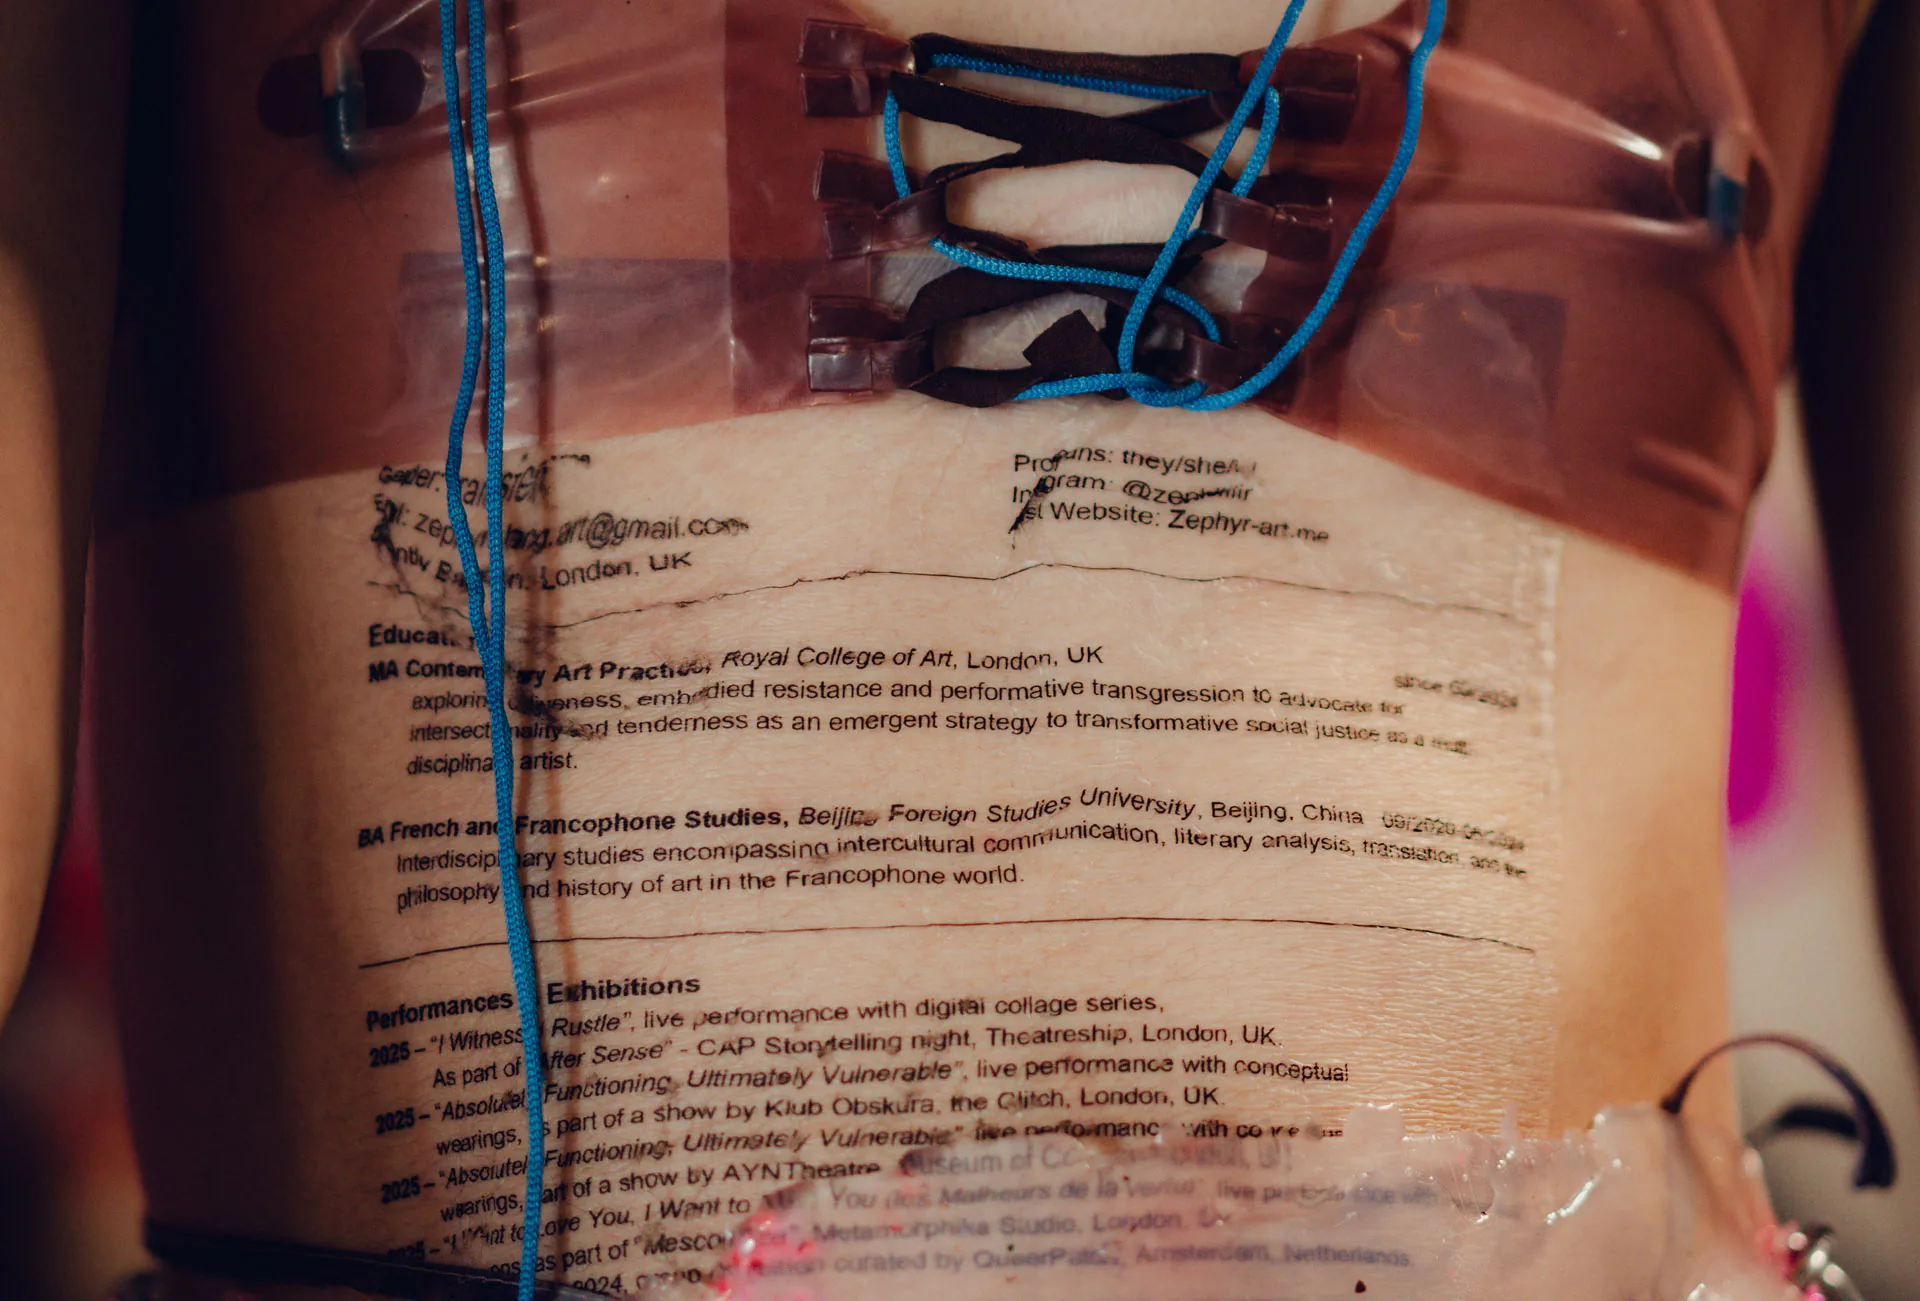 Pronouns: they/she/
London, UK
Website: Zephyr-art.me
Education
MA Contemporary Art Practice, Royal College of Art, London, UK
since 09/2024
exploring embodied resistance and performative transgression to advocate for
intersectionality and tenderness as an emergent strategy to transformative social justice as a
disciplinary artist.
BA French and Francophone Studies, Beijing Foreign Studies University, Beijing, China
Interdisciplinary studies encompassing intercultural communication, literary analysis, translation and the
philosophy and history of art in the Francophone world.
Performances Exhibitions
2025 – "I Witness Rustle", live performance with digital collage series,
As part of "After Sense" - CAP Storytelling night, Theatreship, London, UK.
2025 – "Absolutely Functioning, Ultimately Vulnerable", live performance with conceptual
wearings, as part of a show by Klub Obskura, the Glitch, London, UK.
2025 – "Absolutely Functioning, Ultimately Vulnerable" live performance with
wearings, part of a show by AYNTheatre Museum of
2025 – "I Want to Love You, I Want to You (les Malheurs de la live
as part of Metamorphika Studio, London,
2024, curated by Amsterdam, Netherlands